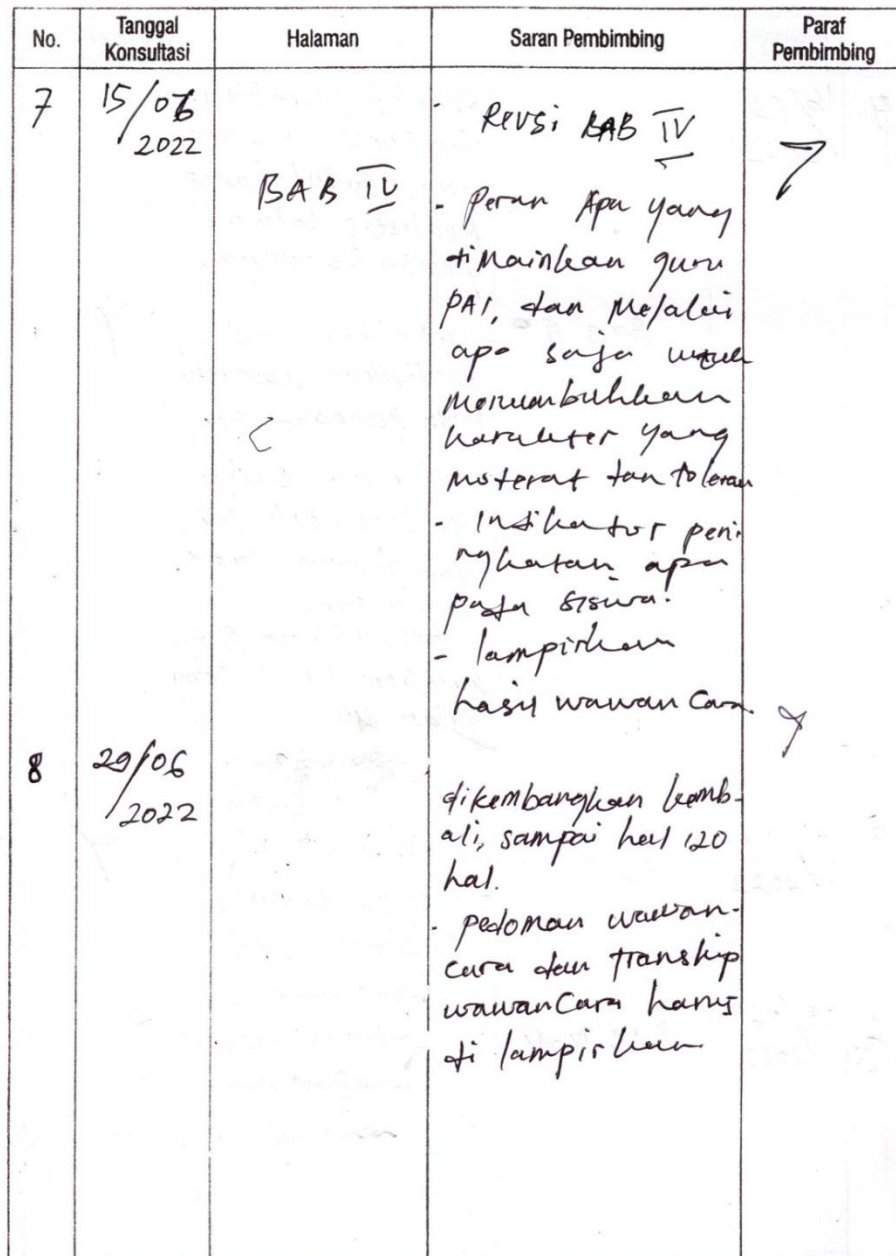 No.
Tanggal Konsultasi
Halaman
Saran Pembimbing
Paraf Pembimbing
7
15/06
2022
BAB IV
- Revsi BAB IV
- Peran Apa yang
dimainkan guru
PAI, dan Melalui
apa saja untuk
Menumbuhkan
karakter yang
moderat dan toleran
- Indikator peni
ngkatan apa
pada siswa.
- lampirkan
hasil wawancara.
8
29/06
2022
dikembangkan kemb-
ali, sampai hal 120
hal.
- pedoman wawan-
cara dan transkip
wawancara harus
di lampirkan